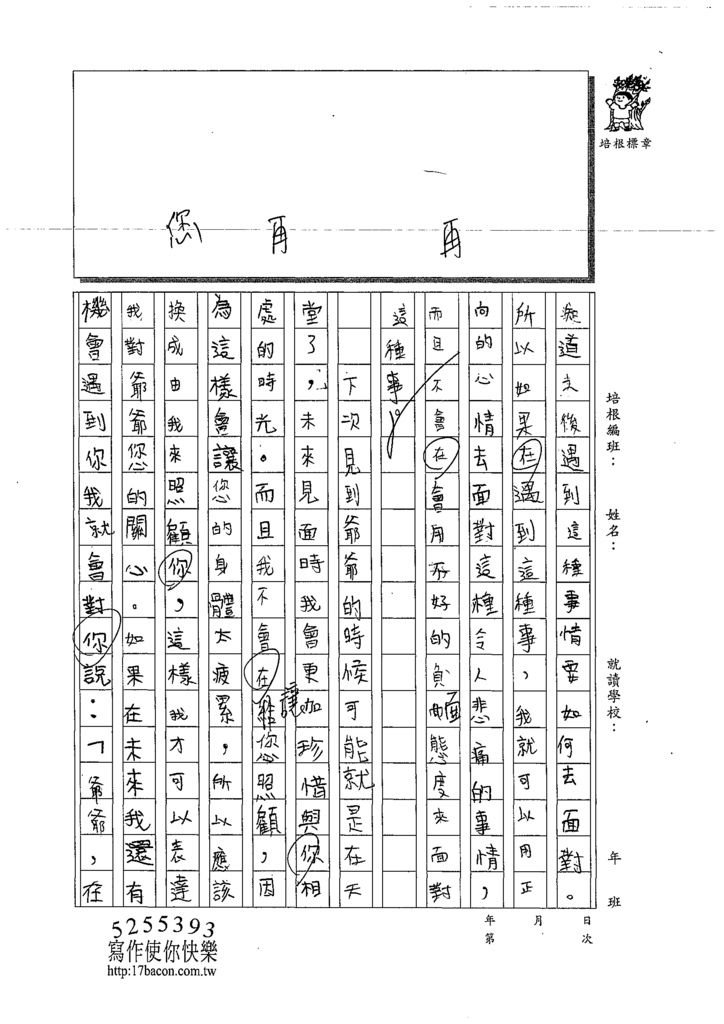 培根標章
再
再
您
道之後遇到這種事情要如何去面對。
所以如果在遇到這種事，我就可以用正
向的心情去面對這種令人悲痛的事情，
而且不會在會用不好的負面態度來面對
這種事。
下次見到爺爺的時候可能就是在天
堂了，未來見面時我會更加珍惜與你相
處的時光。而且我不會在讓您照顧，因
為這樣會讓您的身體太疲累，所以應該
換成由我來照顧你，這樣我才可以表達
我對爺爺您的關心。如果在未來我還有
機會遇到你我就會對你說：「爺爺，在
培根編班：
姓名：
就讀學校：
年 班
年 月 日
第 次
5255393
寫作使你快樂
http:17bacon.com.tw